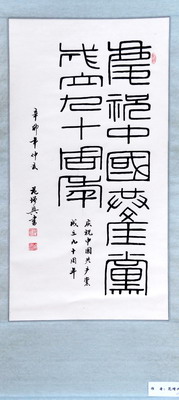 慶祝中國共產黨
成立九十周年
慶祝中国共产党
成立九十周年
辛卯年仲夏
范增兴書